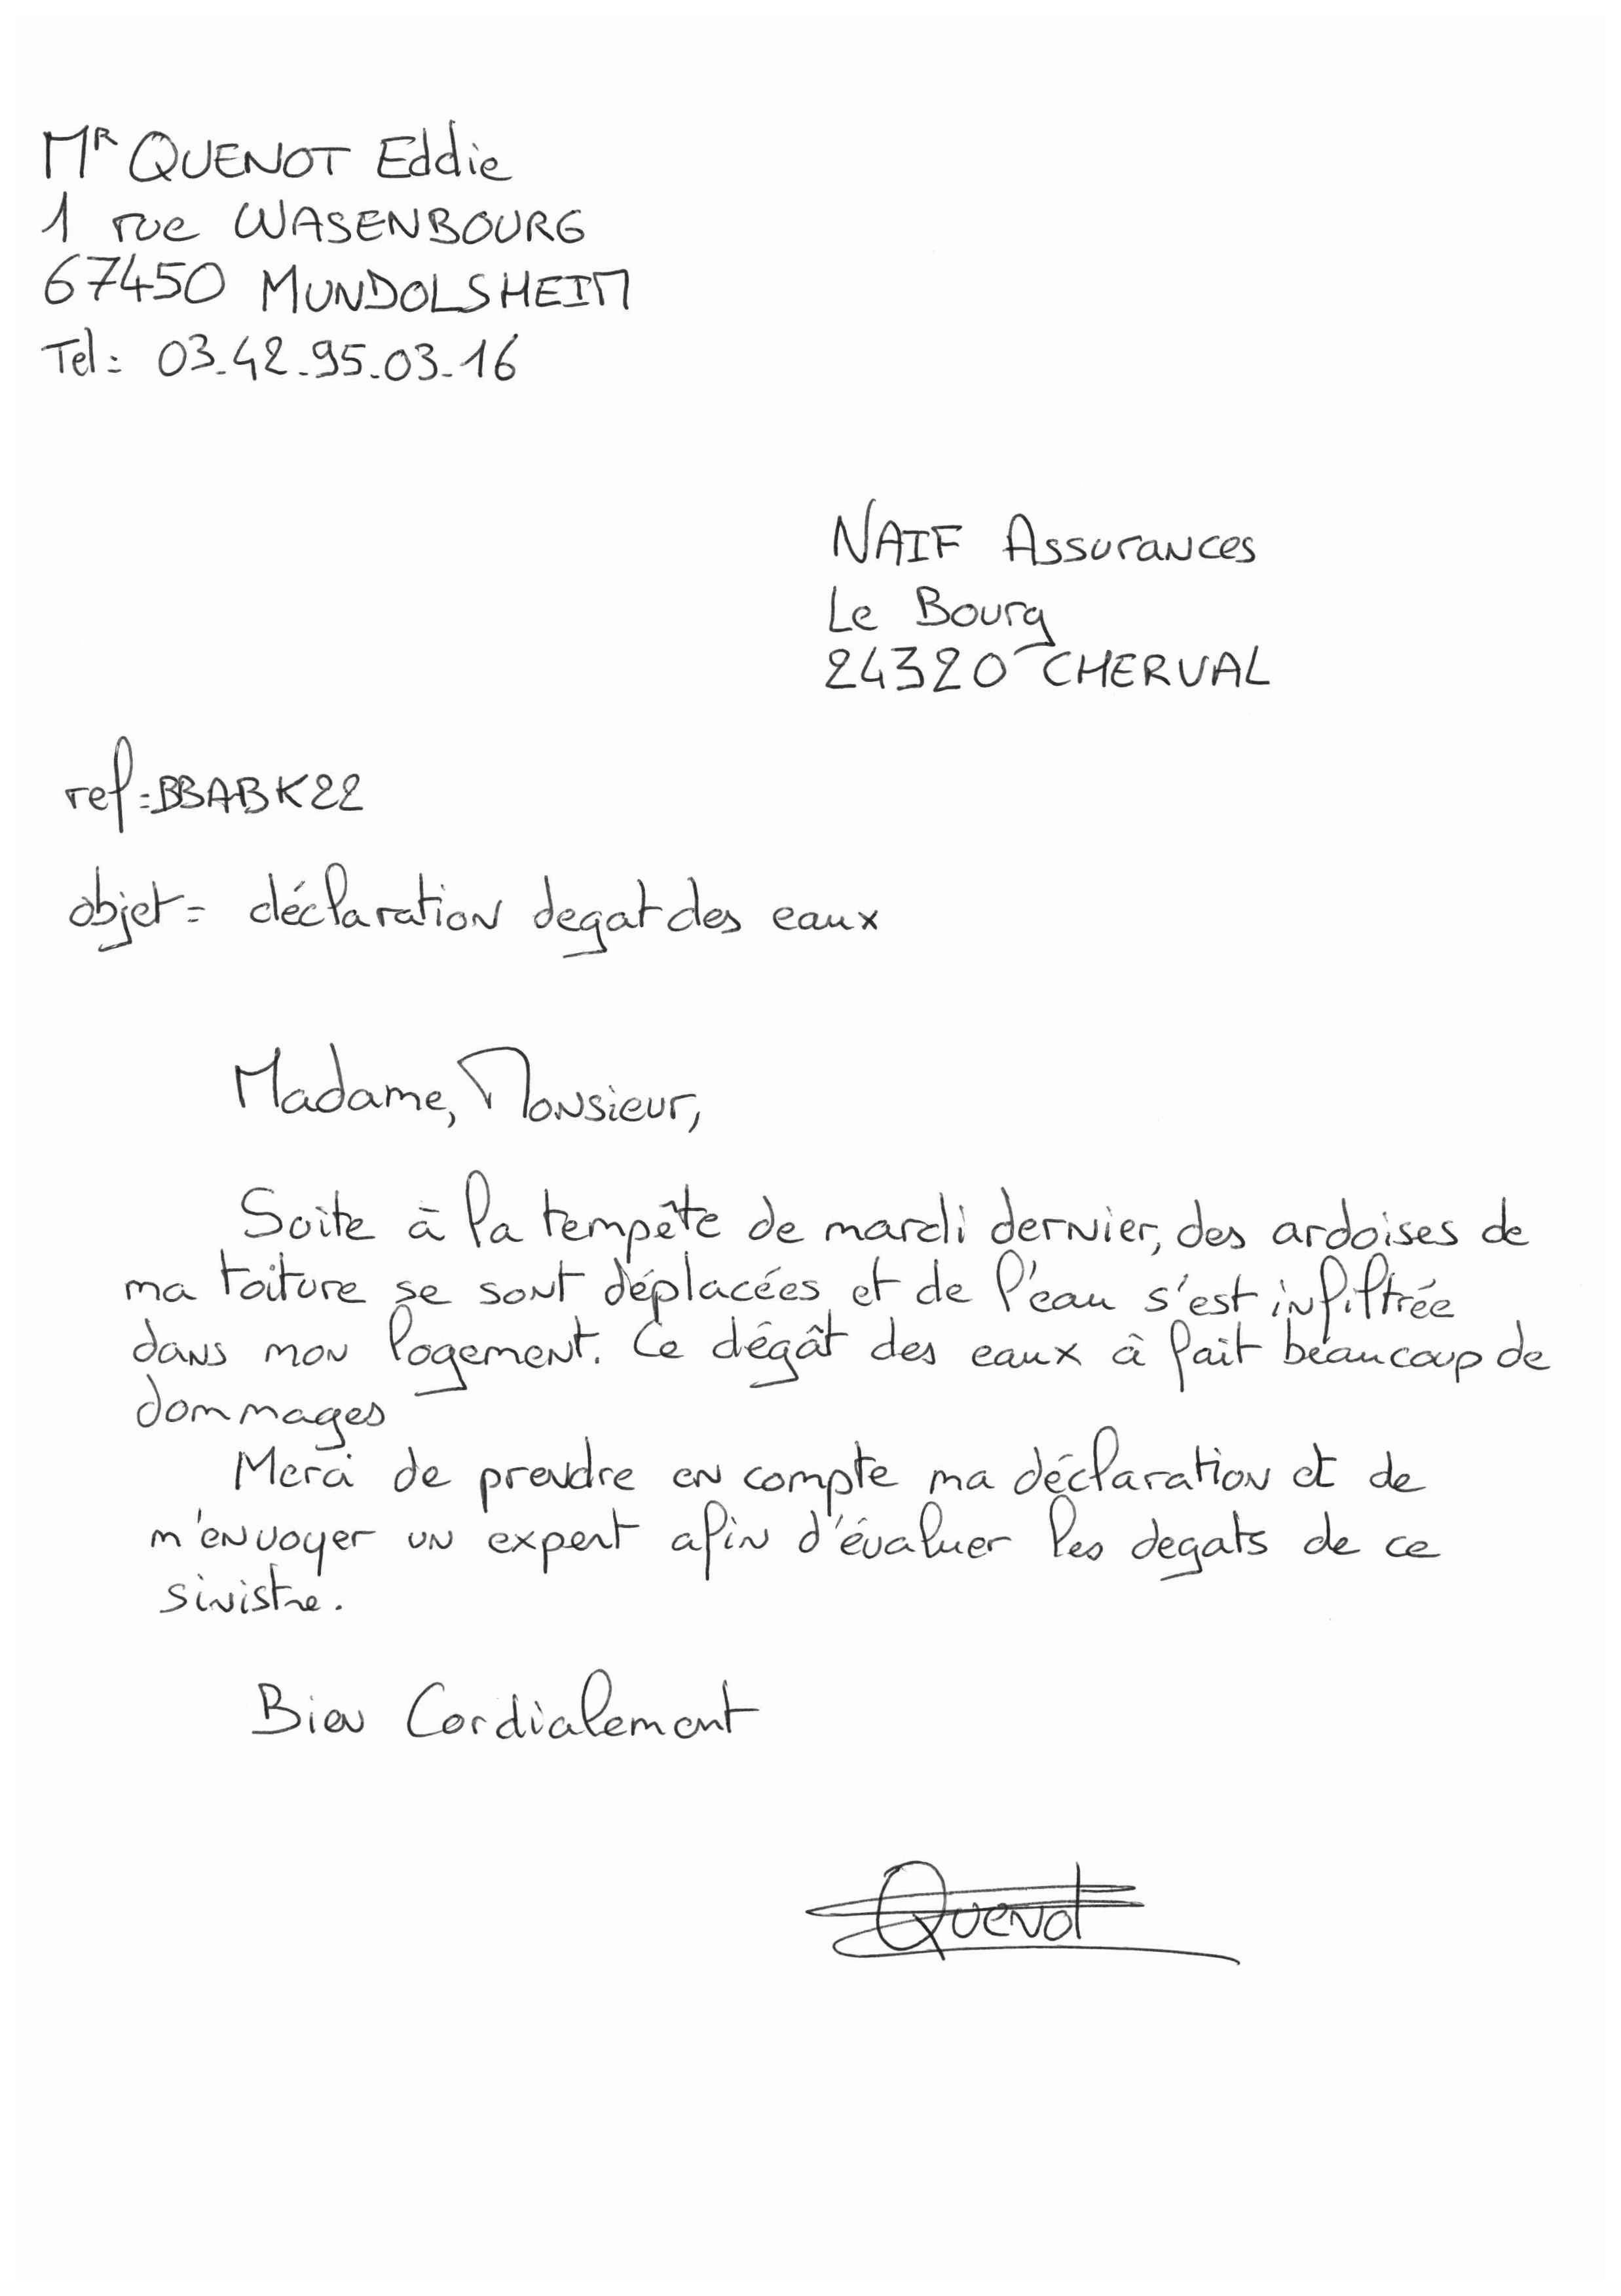 MR QUENOT Eddie
1 rue WASENBOURG
67450 MUNDOLSHEIM
Tel: 03.42.95.03.16
NAIF Assurances
Le Bourg
24320 CHERVAL
ref:BBABK22
objet: déclaration degat des eaux
Madame, Monsieur,
Suite à la tempête de mardi dernier, des ardoises de
ma toiture se sont déplacées et de l'eau s'est infiltrée
dans mon logement. Ce dégât des eaux à fait beaucoup de
dommages
Merci de prendre en compte ma déclaration et de
m'envoyer un expert afin d'évaluer les degats de ce
sinistre.
Bien Cordialement
Quenot